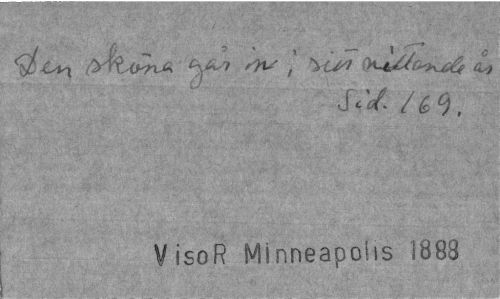 Den sköna går in i sitt nittonde år
Sid. 169.
VisoR Minneapolis 1888